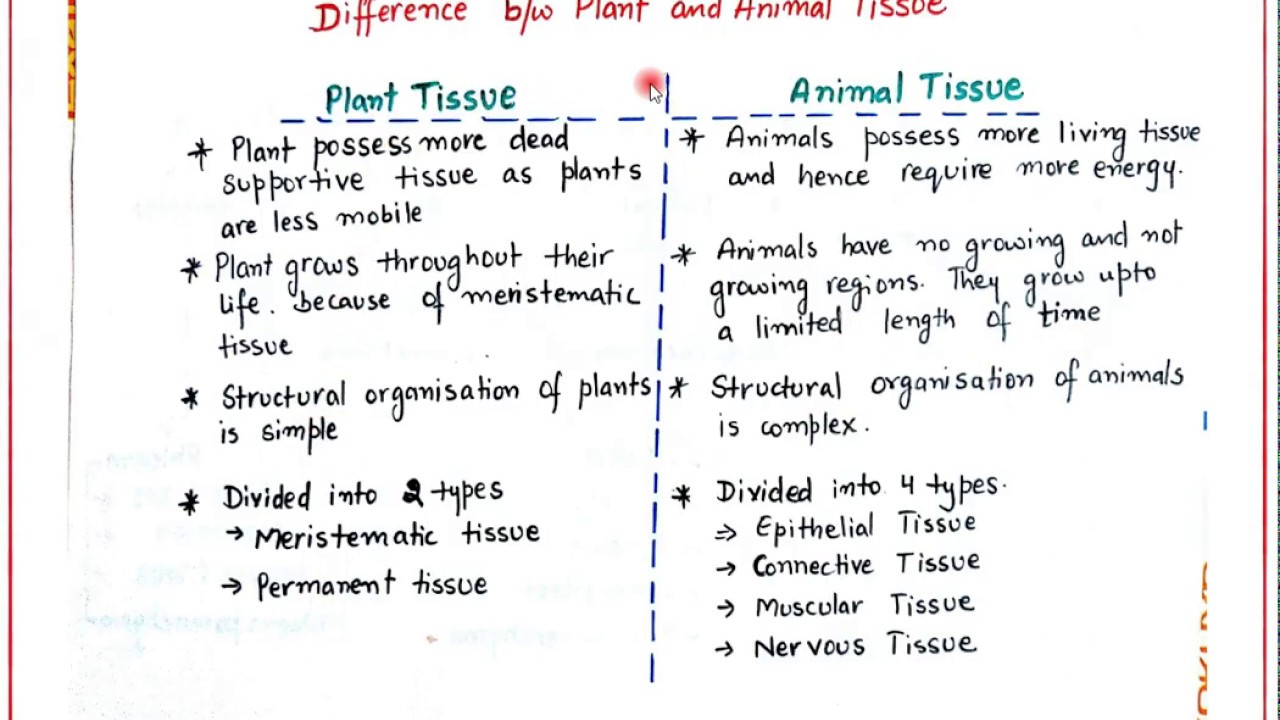 Difference b/w Plant and Animal Tissue
Plant Tissue
* Plant possess more dead
supportive tissue as plants
are less mobile
* Plant grows throughout their
life. because of meristematic
tissue
* Structural organisation of plants
is simple
* Divided into 2 types
→ Meristematic tissue
→ Permanent tissue
Animal Tissue
* Animals possess more living tissue
and hence require more energy.
* Animals have no growing and not
growing regions. They grow upto
a limited length of time
* Structural organisation of animals
is complex.
* Divided into 4 types.
⇒ Epithelial Tissue
→ Connective Tissue
→ Muscular Tissue
→ Nervous Tissue